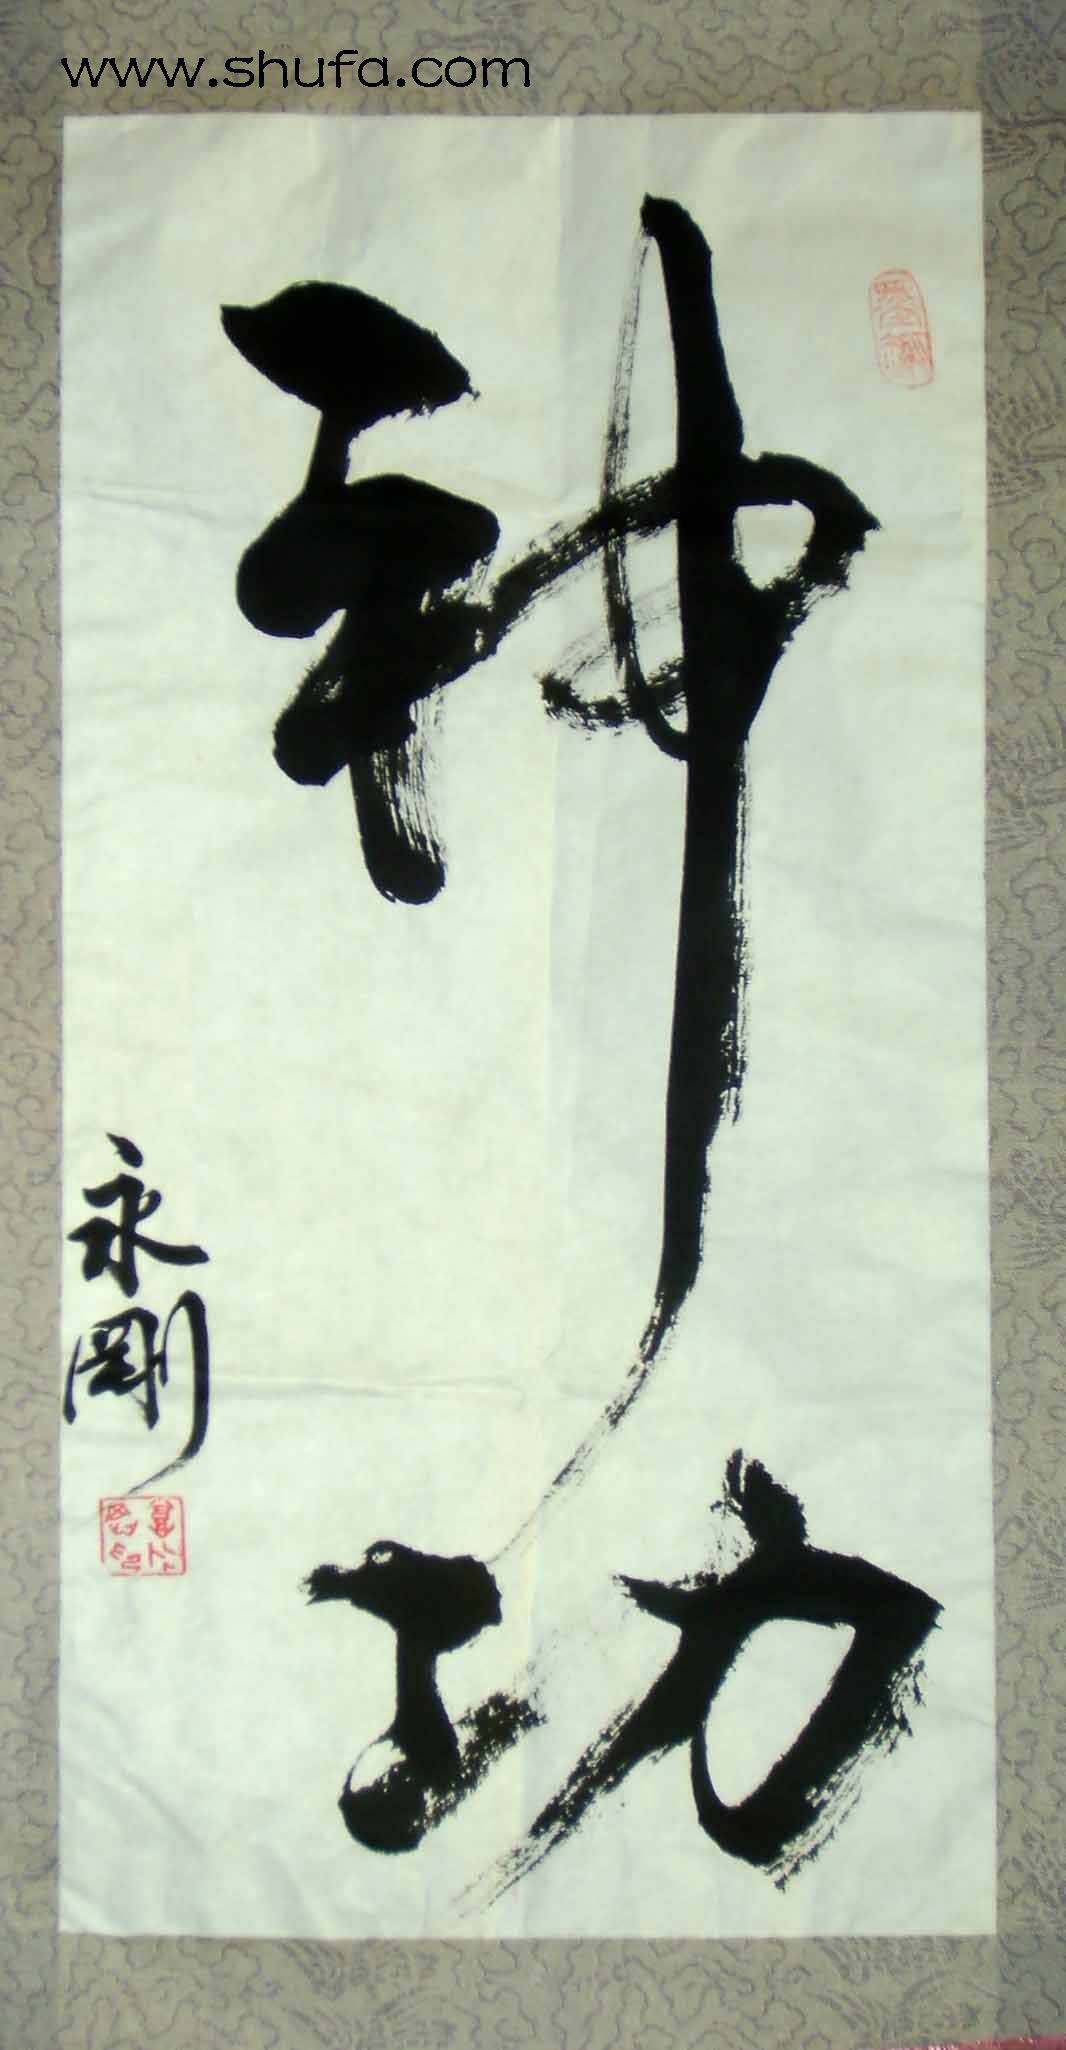 www.shufa.com
神功
永剛